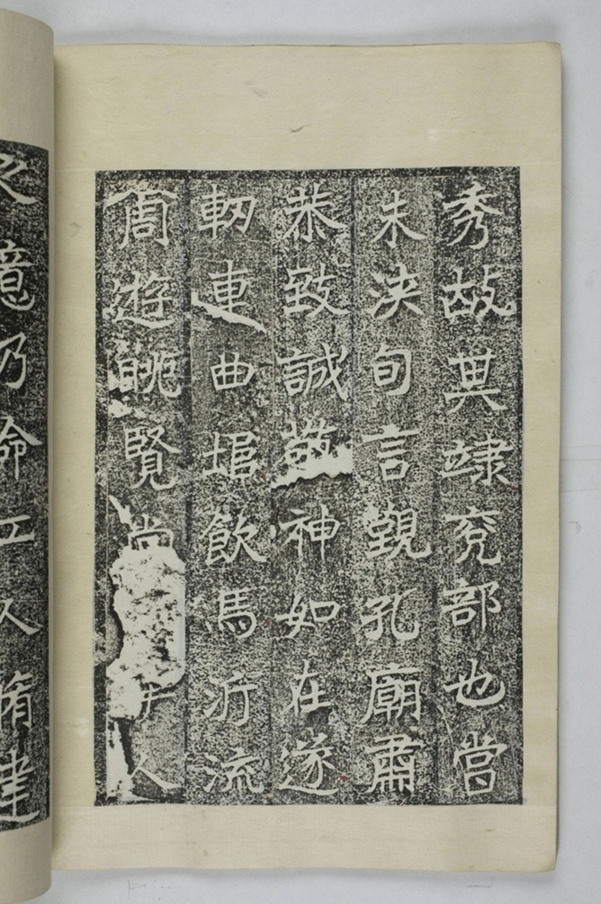 秀故其隸兗部也當
未浹旬言覲孔廟肅
恭致誠敬神如在遂
軔車曲飲馬沂流
周遊眺覽尚人
之意乃命工人脩建